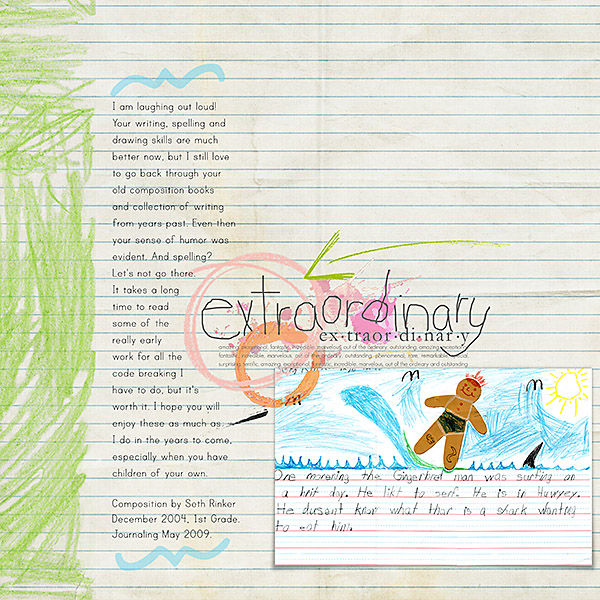 I am laughing out loud!
Your writing, spelling and
drawing skills are much
better now, but I still love
to go back through your
old composition books
and collection of writing
from years past. Even then
your sense of humor was
evident. And spelling?
Let's not go there.
It takes a long
time to read
some of the
really early
work for all the
code breaking I
have to do, but it's
worth it. I hope you will
enjoy these as much as
I do in the years to come,
especially when you have
children of your own.
Composition by Seth Rinker
December 2004, 1st Grade.
Journaling May 2009.
extraordinary
ex·traor·di·nar·y
amazing exceptional, fantastic, incredible, marvelous, out of the ordinary, outstanding, amazing
fantastic, incredible, marvelous, out of the ordinary, outstanding, phenomenal, rare, remarkable, special,
surprising, terrific, amazing, exceptional, fantastic, incredible, marvelous, out of the ordinary and outstanding
One morening the Gingerbret man was surfing on
a brit day. He likt to serf. He is in Huwyey.
He dusant know what thar is a shark wanting
to eat him.